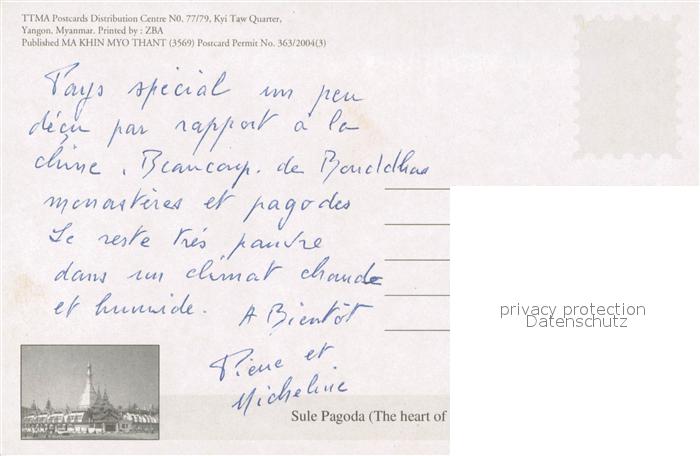 TTMA Postcards Distribution Centre N0. 77/79, Kyi Taw Quarter,
Yangon, Myanmar. Printed by : ZBA
Published MA KHIN MYO THANT (3569) Postcard Permit No. 363/2004(3)
Pays spécial un peu
déçu par rapport à la
chine. Beaucoup de Bouddhas
monastères et pagodes
Le reste très pauvre
dans un climat chaud
et humide. A Bientôt
Pierre et
Micheline
Sule Pagoda (The heart of
privacy protection
Datenschutz